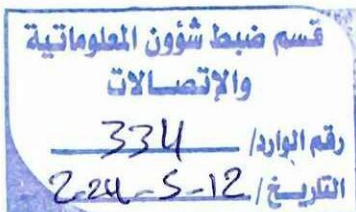 قسم ضبط شؤون المعلوماتية
والإتصالات
رقم الوارد/ 334
التاريخ/ 2024-5-12